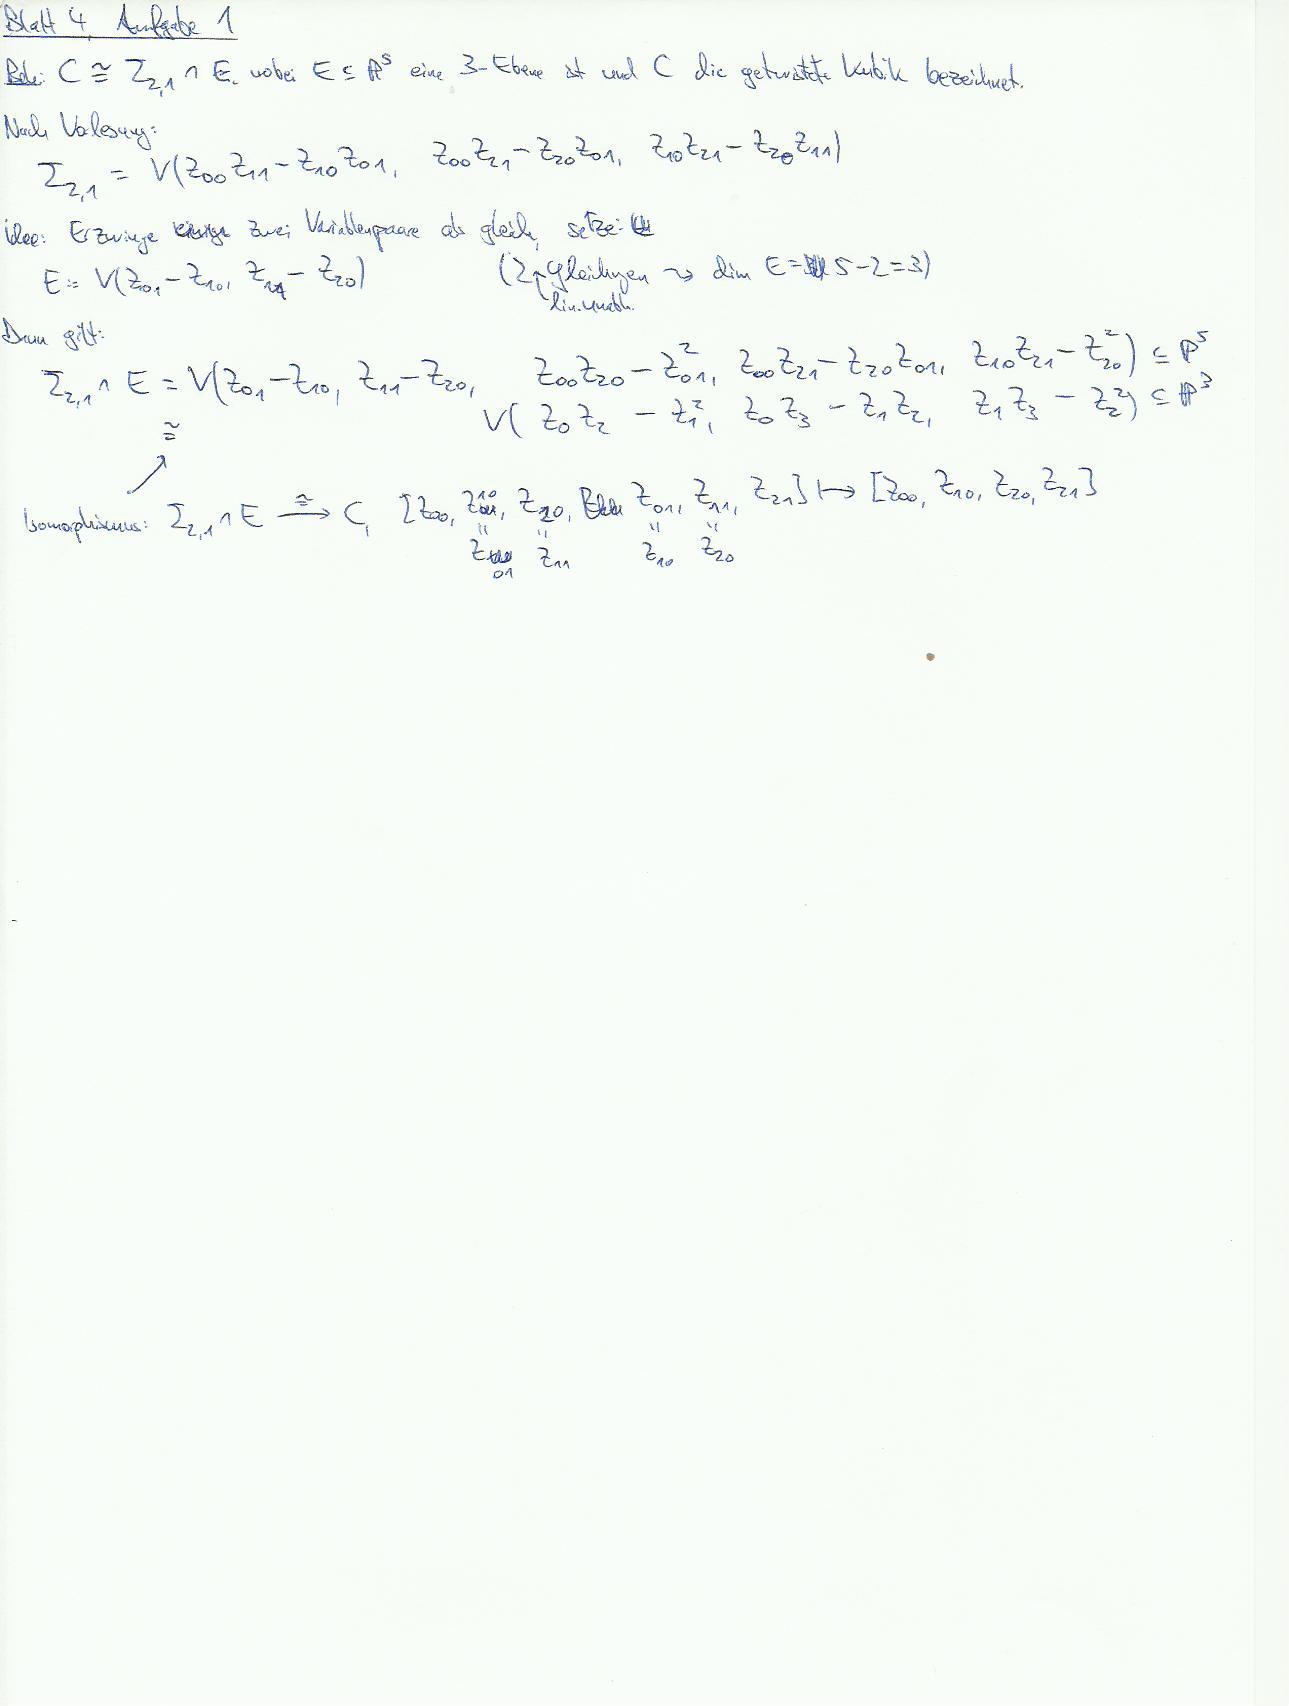 Blatt 4, Aufgabe 1
Beh: C ≅ Σ₂,₁ ∩ E, wobei E ⊆ ℙ⁵ eine 3-Ebene ist und C die getwistete Kubik bezeichnet.
Nach Vorlesung:
Σ₂,₁ = V(Z₀₀Z₁₁ − Z₁₀Z₀₁, Z₀₀Z₂₁ − Z₂₀Z₀₁, Z₁₀Z₂₁ − Z₂₀Z₁₁)
Idee: Erzwinge zwei Variablenpaare als gleich, setze
E := V(Z₀₁ − Z₁₀, Z₁₁ − Z₂₀) (2 Gleichungen ⇝ dim E = 5 − 2 = 3)
lin. unabh.
Dann gilt:
Σ₂,₁ ∩ E = V(Z₀₁ − Z₁₀, Z₁₁ − Z₂₀, Z₀₀Z₂₀ − Z₀₁², Z₀₀Z₂₁ − Z₂₀Z₀₁, Z₁₀Z₂₁ − Z₂₀²) ⊆ ℙ⁵
≅ V(Z₀Z₂ − Z₁², Z₀Z₃ − Z₁Z₂, Z₁Z₃ − Z₂²) ⊆ ℙ³
Isomorphismus: Σ₂,₁ ∩ E ≅→ C, [Z₀₀, Z₁₀, Z₂₀, Z₀₁, Z₁₁, Z₂₁] ↦ [Z₀₀, Z₁₀, Z₂₀, Z₂₁]
= = = =
Z₀₁ Z₁₁ Z₁₀ Z₂₀